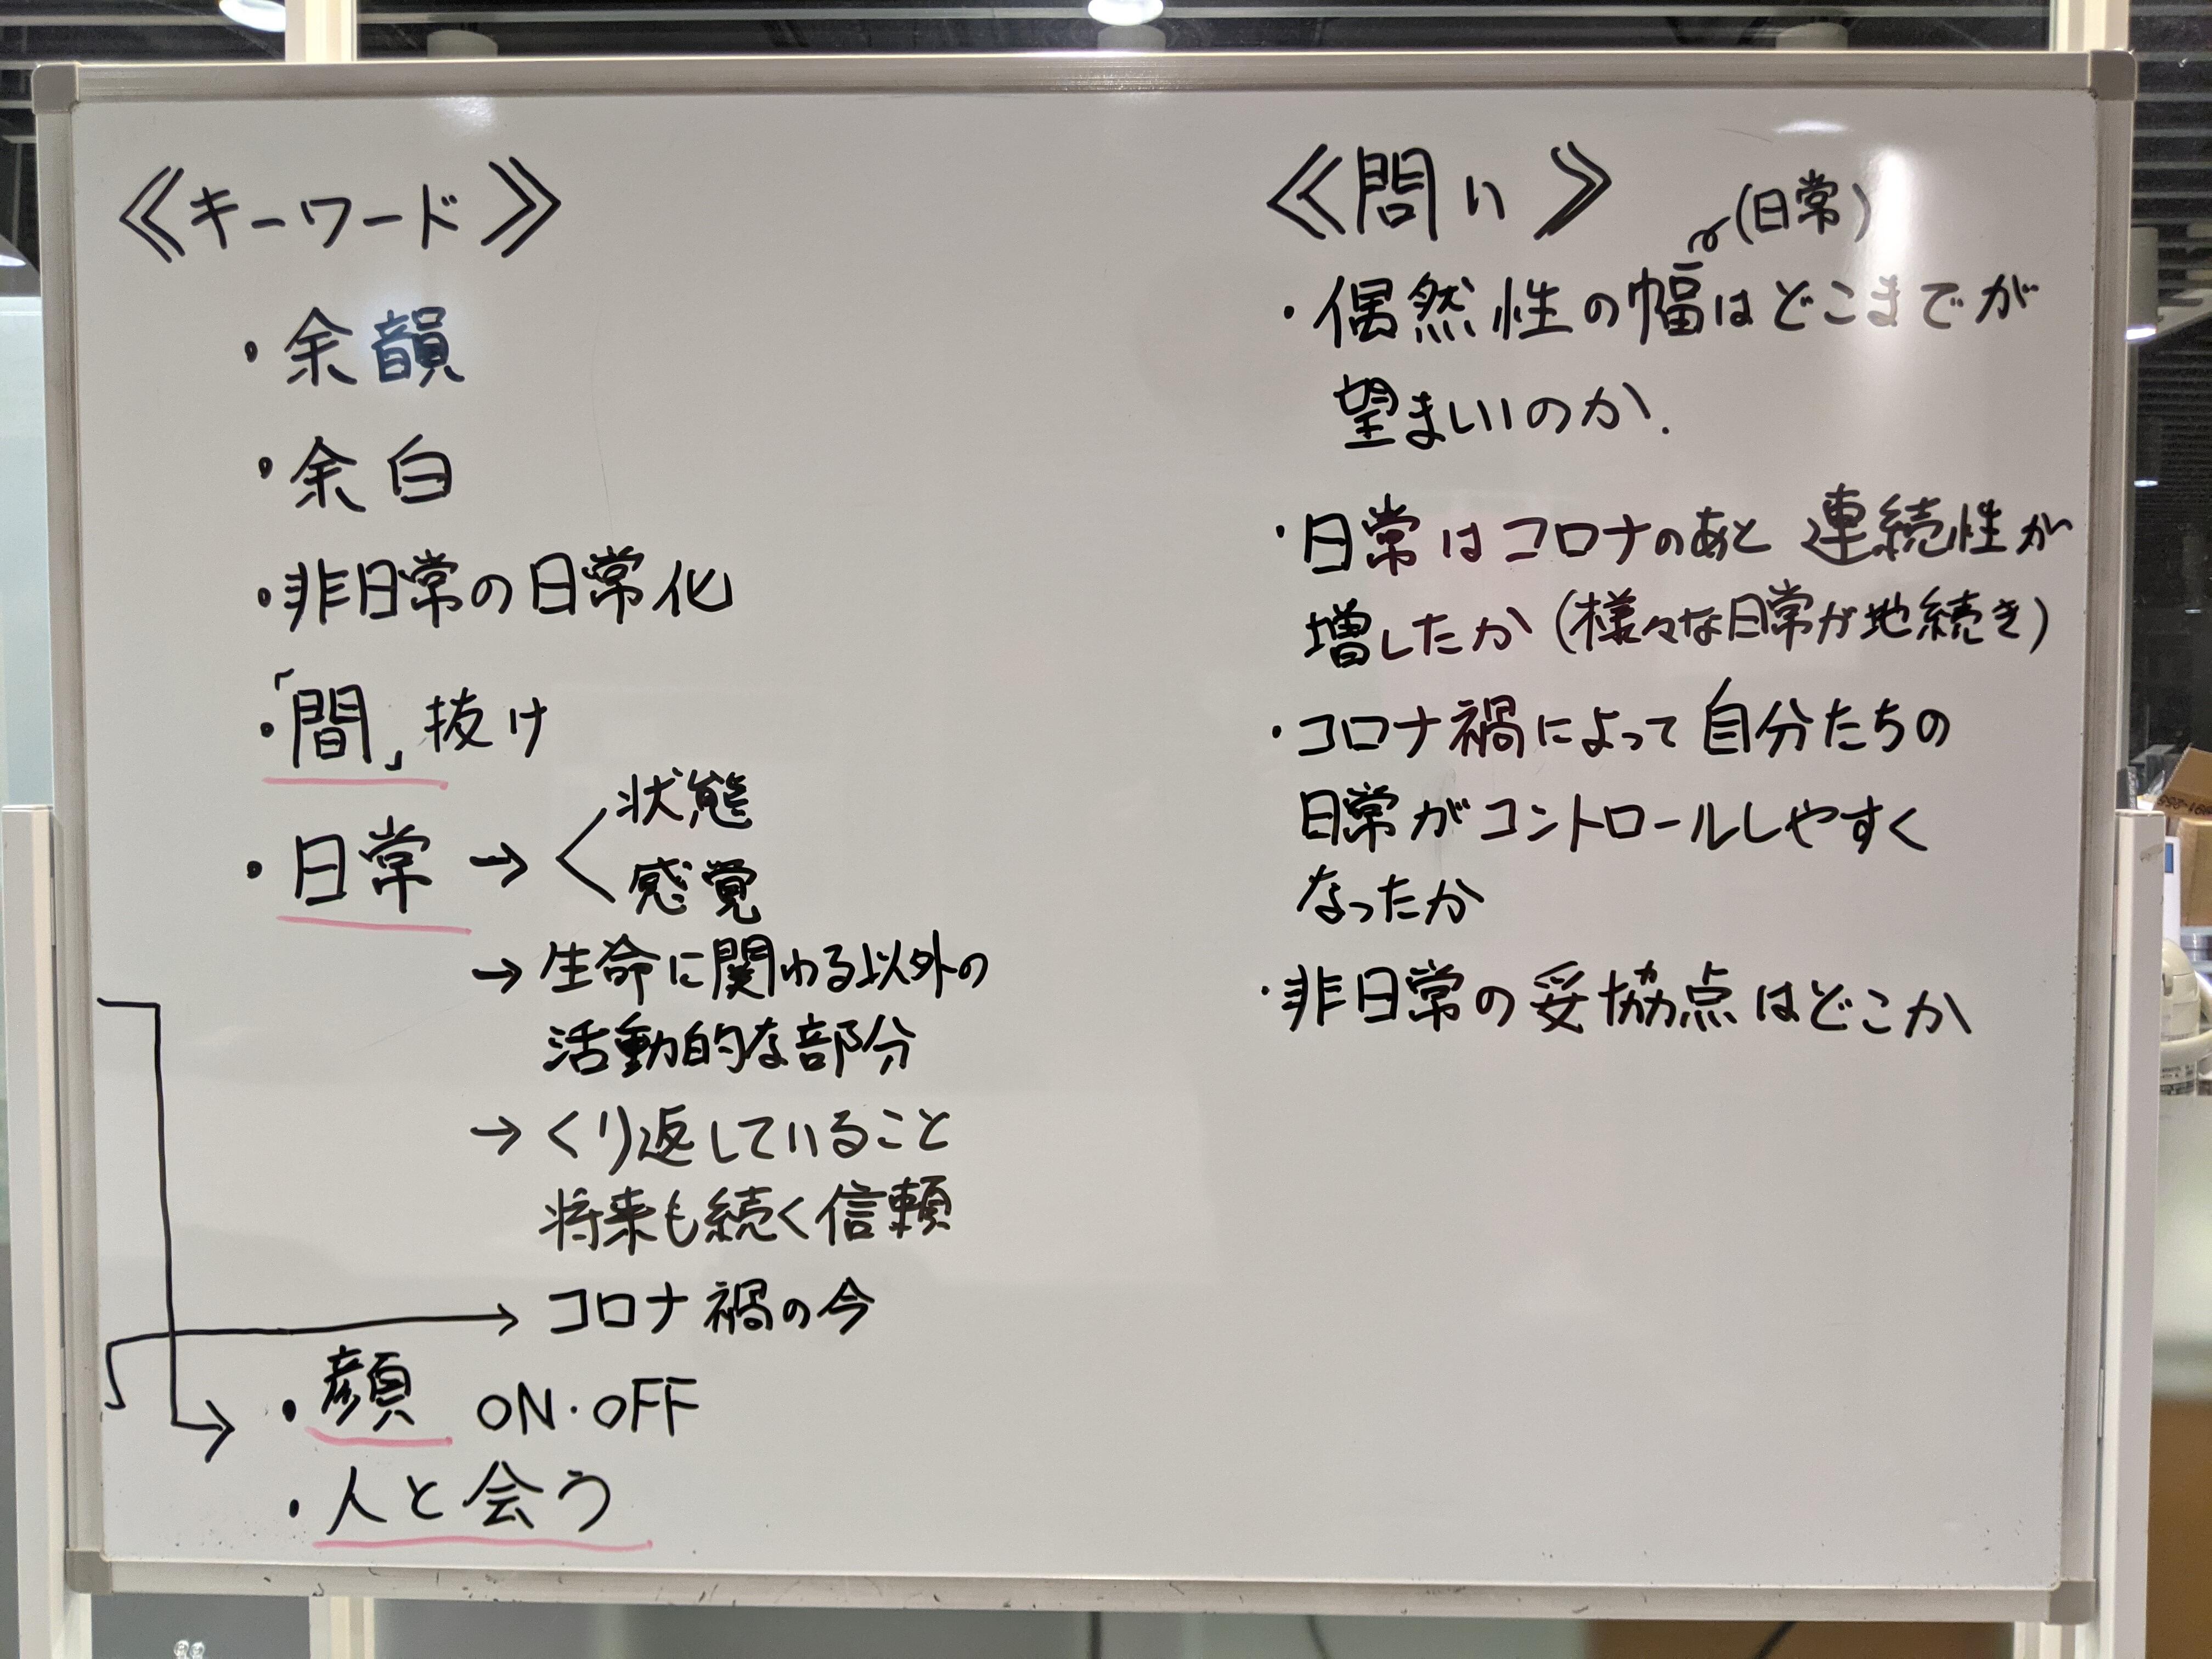 ≪キーワード≫
・余韻
・余白
・非日常の日常化
・「間」抜け
・日常→<状態
感覚
→生命に関わる以外の
活動的な部分
→くり返していること
将来も続く信頼
→コロナ禍の今
・顔 ON・OFF
・人と会う
≪問い≫
(日常)
・偶然性の幅はどこまでが
望ましいのか.
・日常はコロナのあと 連続性が
増したか(様々な日常が地続き)
・コロナ禍によって自分たちの
日常がコントロールしやすく
なったか
・非日常の妥協点はどこか